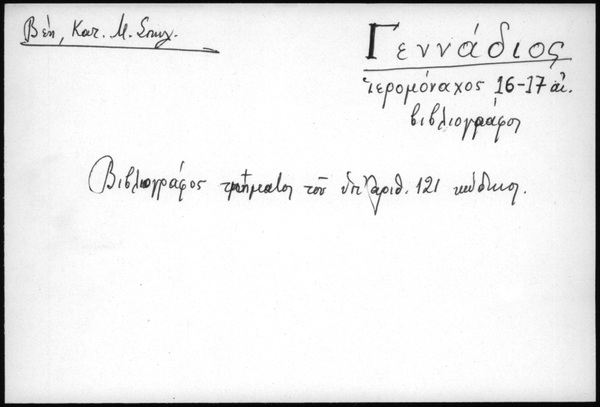 Βέη, Κατ. Μ. Σπηλ.
Γεννάδιος
ἱερομόναχος 16-17 αἰ.
βιβλιογράφος
Βιβλιογράφος τμήματος τοῦ ὑπ' ἀριθ. 121 κώδικος.